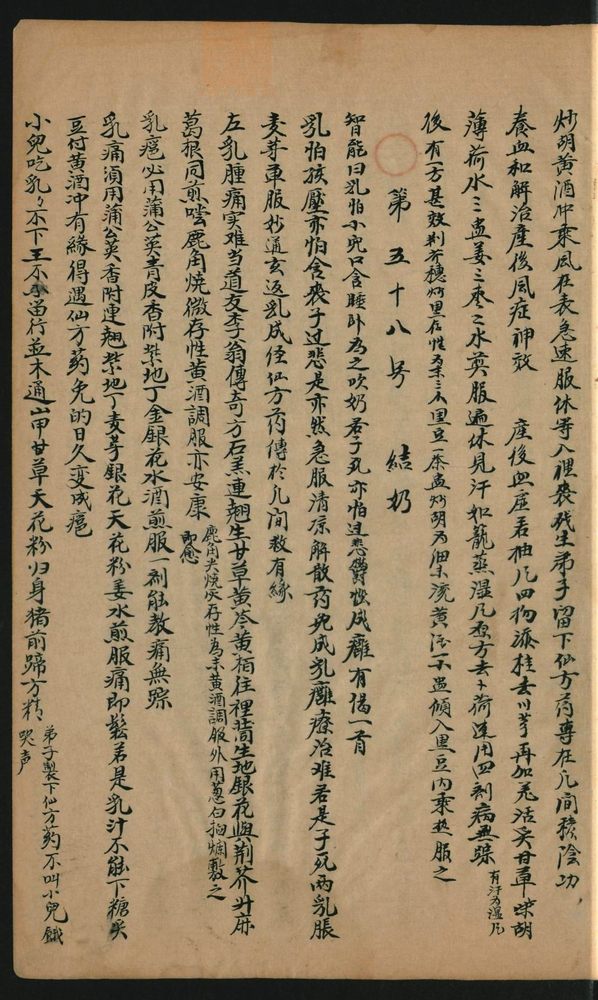 炒胡黄酒冲乘风在表急速服休等入裡喪残生弟子留下仙方药専在凡间積陰功
養血和解治產後風症神效　產後血虚若抽凡四物添桂去川芎再加羌活炙甘草柴胡
薄荷水三盅姜三枣二水煎服遍体見汗如籠蒸湿凡原方去卜荷連用四剂病無踪 有汗為湿凡
後有一方甚效荆芥穗炒黑存性為末三个黑豆一茶盅炒胡為细末滚黄酒一盅傾入黑豆内乘热服之
第五十八号　結奶
智能曰乳怕小兒口含睡卧為之吹奶若子死亦怕过悲鬱恢成癰有偈一首
乳怕孩壓亦怕含喪子过悲是亦然急服清凉解散药免成乳癰療治难若是子死两乳脹
麦芽单服炒通玄返乳成经仙方药傳於凡間教有緣
左乳腫痛实难当道友李翁傳奇方石羔連翹生甘草黄芩黄栢往裡背生地銀花與荆芥升麻
葛根同煎嚐鹿角燒微存性黄酒調服亦安康 鹿角尖燒灰存性為末黄酒調服外用葱白搗爛敷之即愈
乳癌必用蒲公英青皮香附紫地丁金銀花水酒煎服一剂能教痛無踪
乳痛須用蒲公英香附連翹紫地丁麦芽銀花天花粉姜水煎服痛即鬆若是乳汁不能下糖炙
豆付黄酒冲有緣得遇仙方药免的日久变成癌
小兒吃乳乳不下王不留行並木通山甲甘草天花粉归身猪前蹄方精 弟子製下仙方药不叫小兒餓哭声